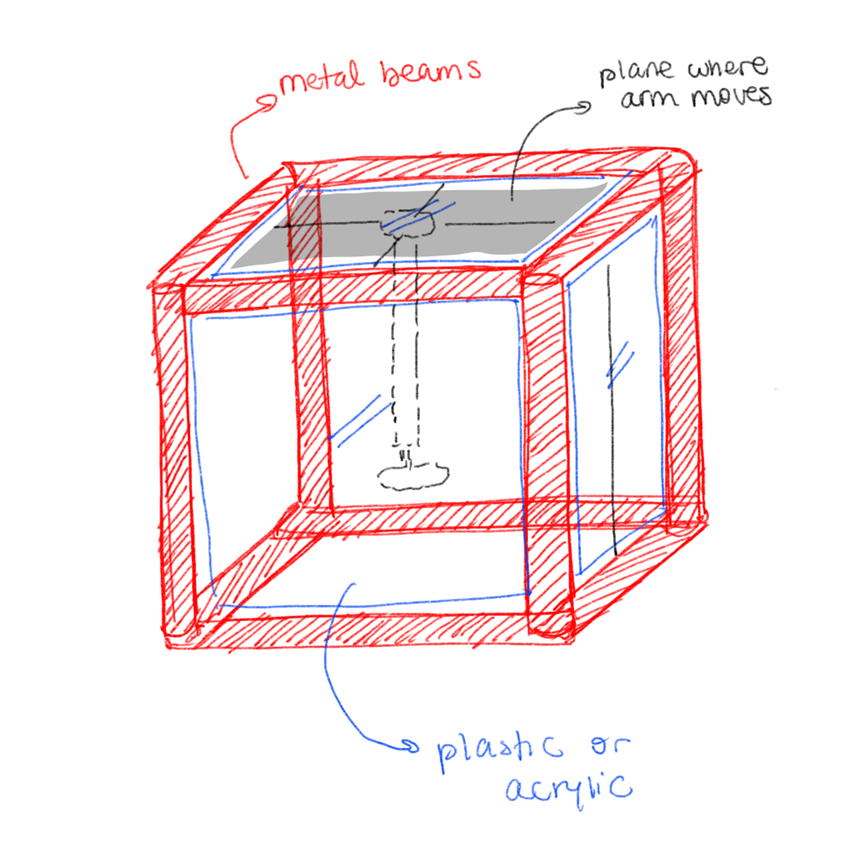 metal beams
plane where
arm moves
plastic or
acrylic